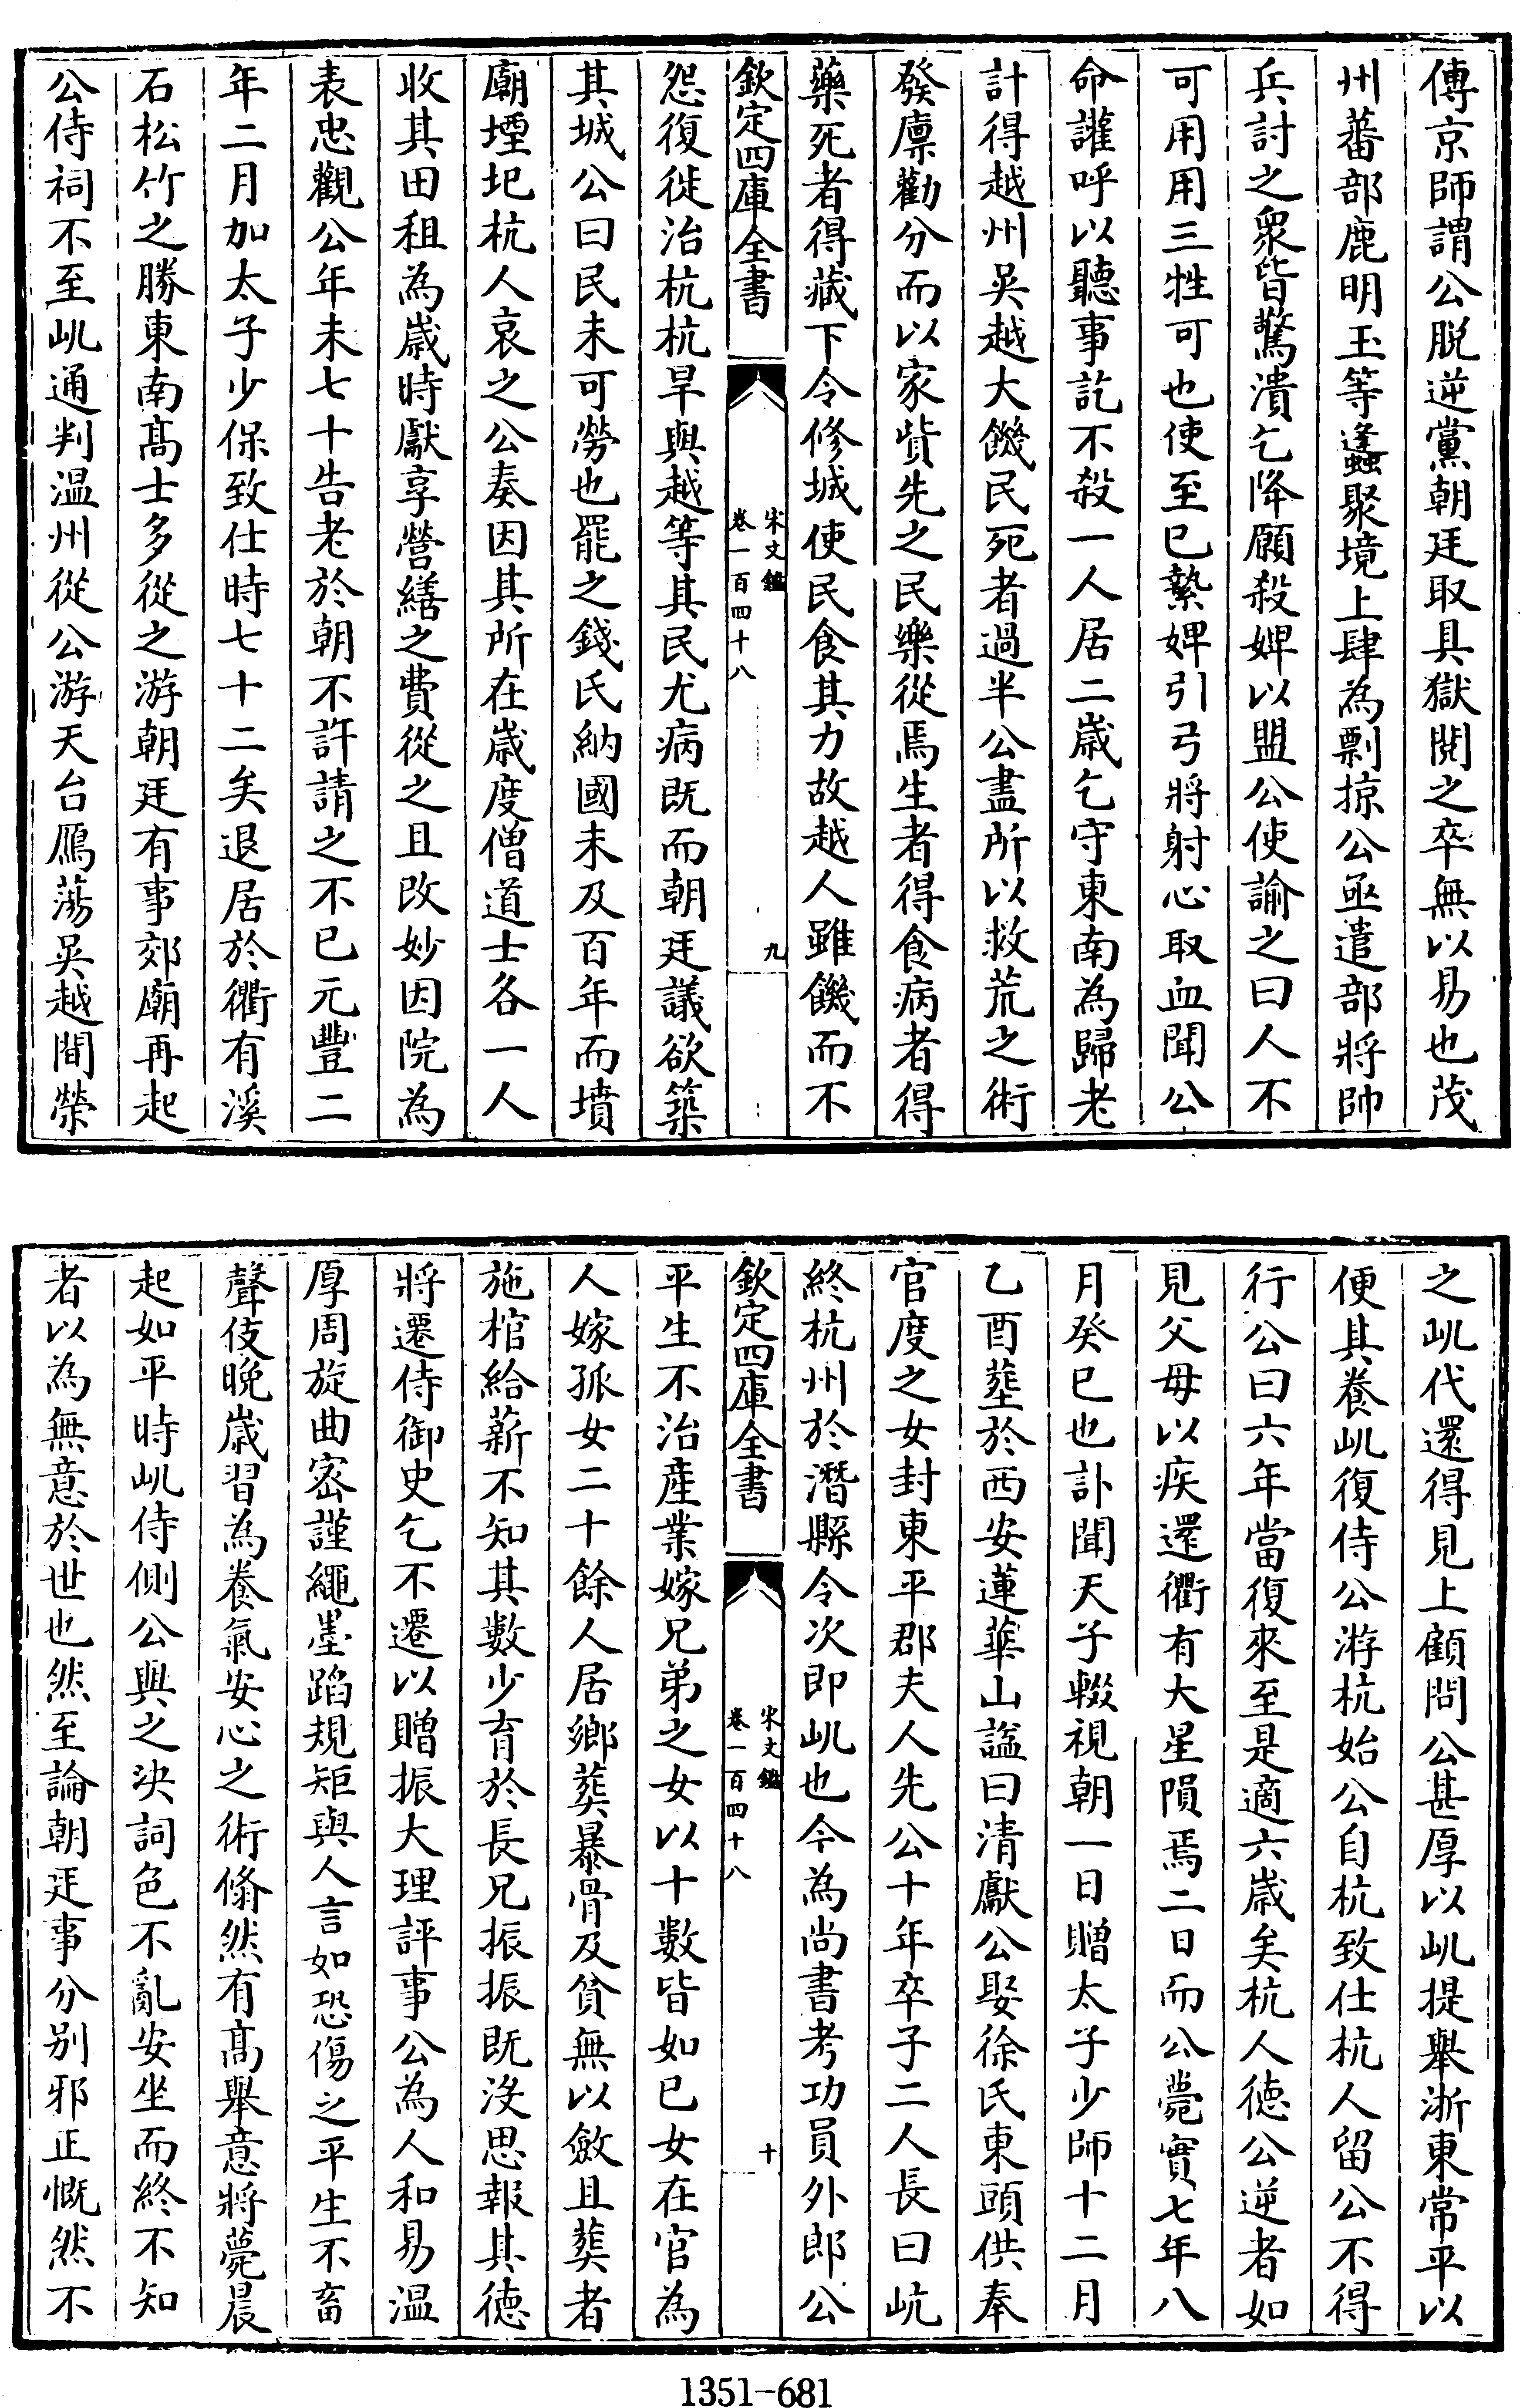 傳京師謂公脱逆黨朝廷取具獄閲之卒無以易也茂
州蕃部鹿明玉等蠭聚境上肆為剽掠公亟遣部將帥
兵討之衆皆驚潰乞降願殺婢以盟公使諭之曰人不
可用用三牲可也使至已縶婢引弓將射心取血聞公
命讙呼以聽事訖不殺一人居二歲乞守東南為歸老
計得越州吳越大饑民死者過半公盡所以救荒之術
發廪勸分而以家貲先之民樂從焉生者得食病者得
藥死者得藏下令修城使民食其力故越人雖饑而不
欽定四庫全書
宋文鑑
卷一百四十八
九
怨復徙治杭杭旱與越等其民尤病既而朝廷議欲築
其城公曰民未可勞也罷之錢氏納國未及百年而墳
廟堙圯杭人哀之公奏因其所在歲度僧道士各一人
收其田租為歲時獻享營繕之費從之且改妙因院為
表忠觀公年未七十告老於朝不許請之不已元豐二
年二月加太子少保致仕時七十二矣退居於衢有溪
石松竹之勝東南髙士多從之游朝廷有事郊廟再起
公侍祠不至屼通判温州從公游天台鴈蕩吳越間榮
之屼代還得見上顧問公甚厚以屼提舉浙東常平以
便其養屼復侍公游杭始公自杭致仕杭人留公不得
行公曰六年當復來至是適六歲矣杭人德公逆者如
見父母以疾還衢有大星隕焉二日而公薨實七年八
月癸巳也訃聞天子輟視朝一日贈太子少師十二月
乙酉塟於西安蓮華山諡曰清獻公娶徐氏東頭供奉
官度之女封東平郡夫人先公十年卒子二人長曰屼
終杭州於潛縣令次即屼也今為尚書考功員外郎公
欽定四庫全書
宋文鑑
卷一百四十八
十
平生不治産業嫁兄弟之女以十數皆如已女在官為
人嫁孤女二十餘人居鄉葬暴骨及貧無以斂且葬者
施棺給薪不知其數少育於長兄振振既沒思報其徳
將遷侍御史乞不遷以贈振大理評事公為人和易温
厚周旋曲宻謹繩墨蹈規矩與人言如恐傷之平生不畜
聲伎晚歲習為養氣安心之術翛然有髙舉意將薨晨
起如平時屼侍側公與之决詞色不亂安坐而終不知
者以為無意於世也然至論朝廷事分别邪正慨然不
1351-681